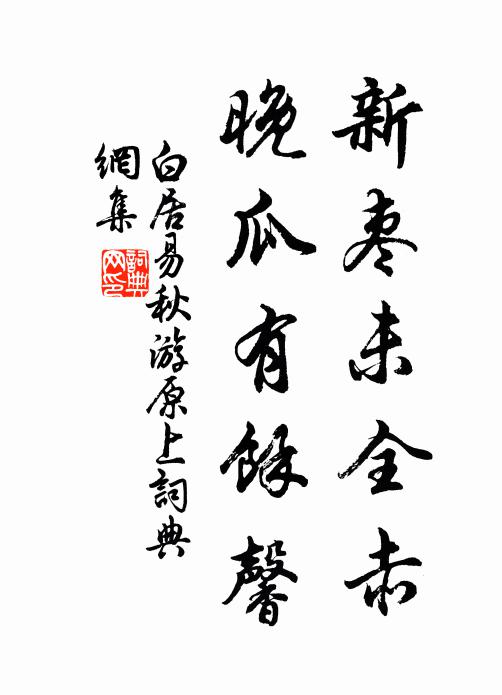 新枣未全赤
晚瓜有馀馨
白居易秋游原上詞典
網集
詞典
网印